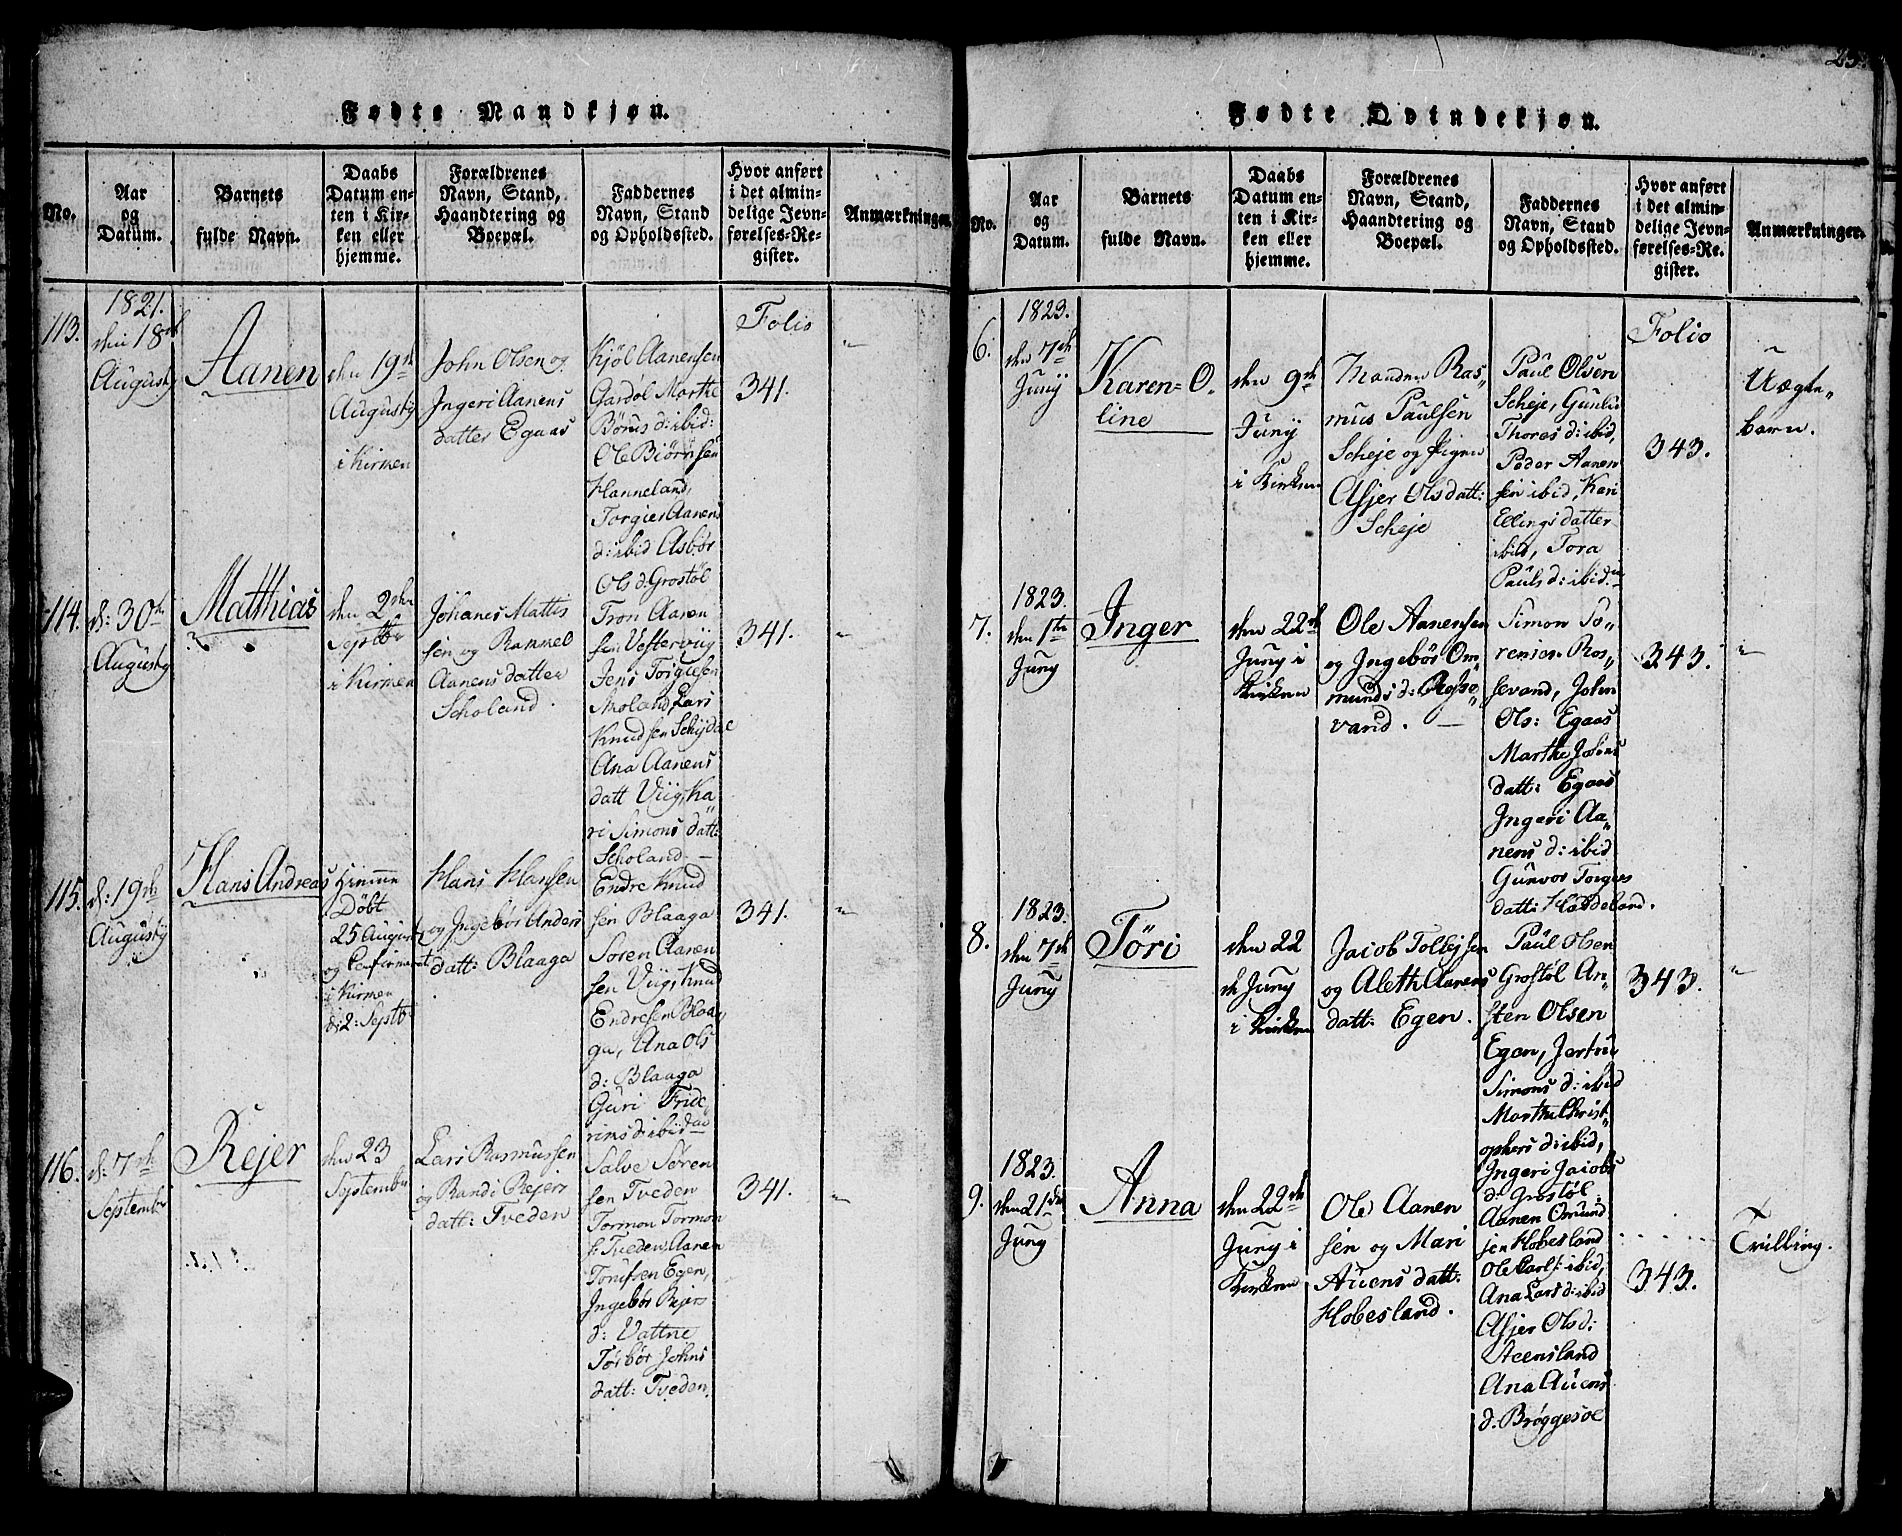 Fødte Mandkjøn.
No.
Aar
og
Datum.
Barnets
fulde Navn.
Daabs
Datum en-
ten i Kir-
ken eller
hjemme.
Forældrenes
Navn, Stand,
Haandtering og
Boepæl.
Faddernes
Navn, Stand
og Opholdssted.
Hvor anført
i det almin-
delige Jevn-
førelses-Re-
gister.
Anmærkninger
113.
1821.
den 18de
Augusty
Aanen
den 19de
Augusty
i Kirken
John Olsen og
Ingeri Aanens
datter Egaas
Kjöl Aanensen
Gardöl Marthe
Börus d: ibid:
Ole Biörnsen
Hanneland,
Torgier Aanens
d: ibid Asbör
Ols d: Grostöl
Folio
341.
"
114.
d: 30te
Augusty
Matthias
den 2den
Septbr
i Kirken
Johanes Mattis
sen og Rammel
Aanens datter
Scholand.
Tron Aanen
sen Vesterviig
Jens Torgiesen
Moland, Lars
Knudsen Schijdal
Ana Aanens
datt Viig, Ka
ri Simons datt:
Scholand
341.
"
115.
d: 19de
Augusty
Hans Andreas
Hjemme
Döbt
25 August
og Confirmeret
i Kirken
d: 2: Septbr
Hans Hansen
og Ingebör Anders
datt: Blaaga
Endre Knud
sen Blaaga
Sören Aanen
sen Viig, Knud
Endresen Blaa,
ga, Ana Ols
d: Blaaga
Guri Fride,
rins d: ibid
341.
"
116.
d: 7de
September
Rejer
den 23
September
Lars Rasmussen
og Randi Rejers
datt: Tveden
Salve Sören
sen Tveden
Tormon Tormon
s: Tveden, Aanen
Tonissen Egen,
Ingebör Rejers
d: Vattne
Törbör Johns
datt: Tveden.
341.
"
25.
Fødte Qvindekjøn.
No.
Aar
og
Datum.
Barnets
fulde Navn.
Daabs
Datum en-
ten i Kir-
ken eller
hjemme.
Forældrenes
Navn, Stand,
Haandtering og
Boepæl.
Faddernes
Navn, Stand
og Opholdssted.
Hvor anført
i det almin-
delige Jevn-
førelses-Re-
gister.
Anmærkninger.
6.
1823.
den 7de
Junij
Karen=O.
line
den 9de
Junij
i Kirken
Manden Ras„
mus Paulsen
Scheje og Pigen
Asjer Olsdatt:
Scheje
Paul Olsen
Scheje, Gunlu
Thores d: ibid,
Peder Aanen
sen ibid, Kari
Ellings datter
ibid, Tora
Pauls d: ibid
Folio
343.
Uægte„
barn.
7.
1823.
den 1ste
Juny
Inger
den 22de
Juny i
Kirken
Ole Aanensen
og Ingebör Om„
munds d: Rosse„
vand.
Simon Sö„
rensen Ros„
sevand, John
Ols: Egaas
Marthe Johns
datt: Egaas
Ingeri Aa„
nens d: ibid
Gunvor Torgers
datt: Haddeland.
343.
"
8.
1823.
den 7de
Juny
Töri
den 22
de Juny
i Kirken
Jacob Tollejsen
og Aleth Aanens
datt: Egen.
Paul Olsen
Grostöl An„
sten Olsen
Egen, Jertru
Simons d: ibid
Marthe Christ„
ophers d: ibid,
Ingeri Jacobs
d: Grostöl.
343.
"
9.
1823.
den 21de
Juny
Anna
den 22de
Juny i
Kirken
Ole Aanen
sen og Mari
Auens datt:
Hobesland.
Aanen Omund
sen Hobesland
Ole Carls: ibid,
Ana Lars d: ibid
Asjer Ols d:
Steensland
Ana Auens
d: Bröggesöe
343.
Trilling.